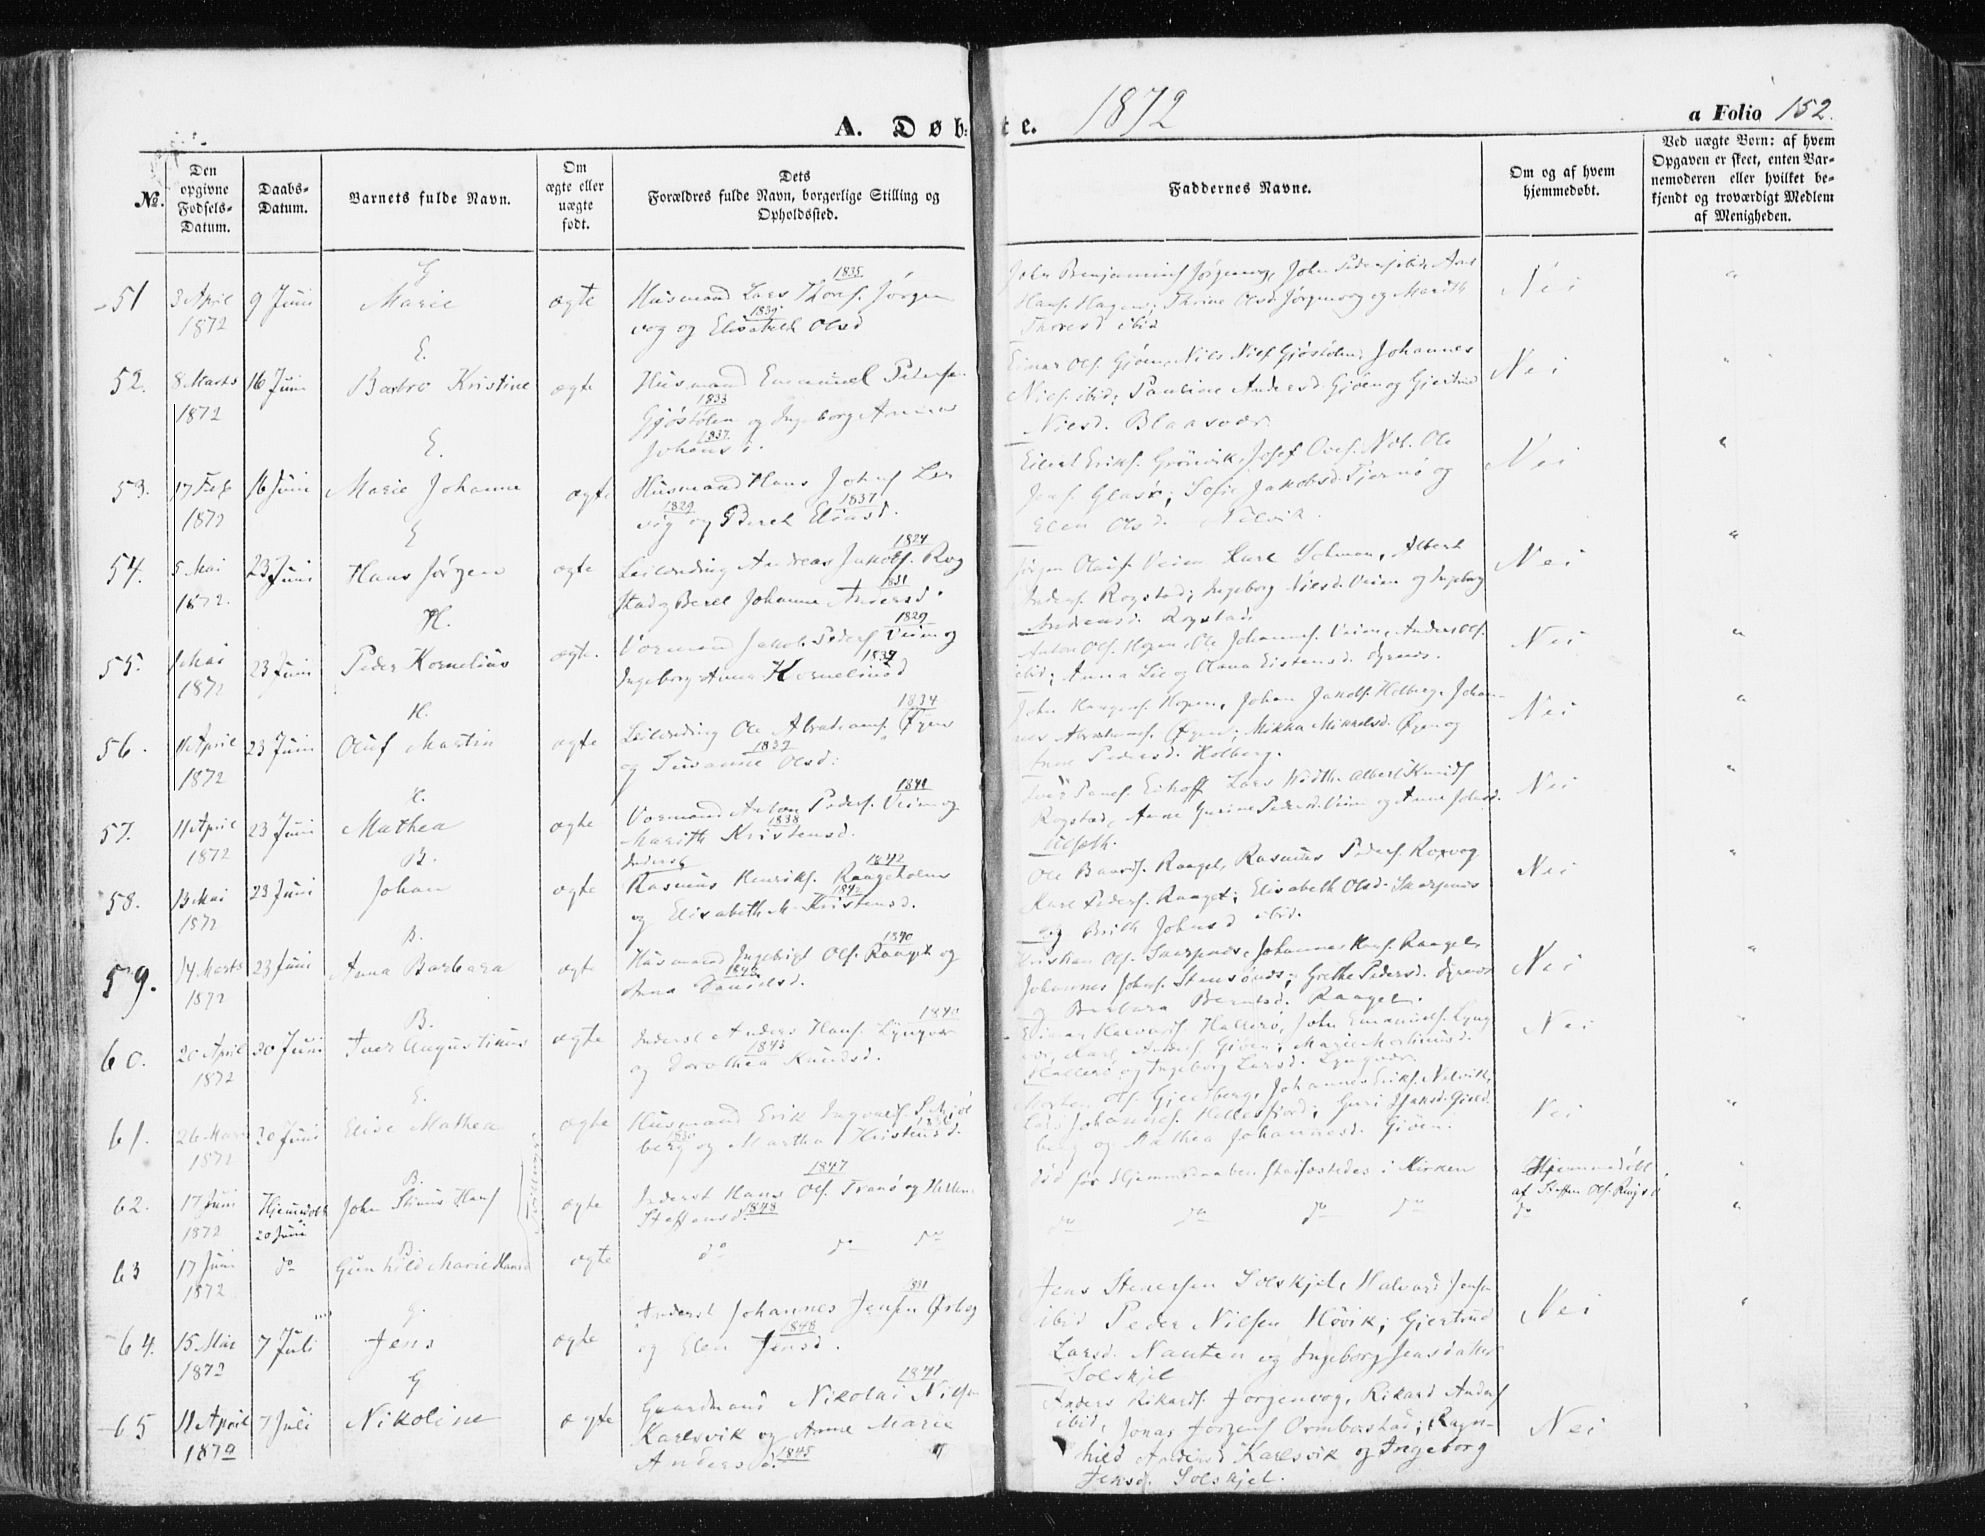 A. Døbte. 1872
a Folio 152.
№.
Den opgivne Fødsels-Datum.
Daabs-Datum.
Barnets fulde Navn.
Om ægte eller uægte født.
Dets Forældres fulde Navn, borgerlige Stilling og Opholdssted.
Faddernes Navne.
Om og af hvem hjemmedøbt.
Ved uægte Børn: af hvem Opgaven er skeet, enten Barnemoderen eller hvilket bekjendt og troværdigt Medlem af Menigheden.
51 3 April 1872 9 Juni G Marie ægte Husmand Lars Thoresf. Jörgen 1835
vog og Elisabeth Olsd 1835
John Benjaminsf Jörgenvog, John Pedersf ibid,
Hansf. Hagen; Thrine Olsd. Jörgenvog og Marith
Thoresd ibid
Nei "
52. 8 Marts 1872 16 Juni E. Barbro Kristine ægte Husmand Emanuel Pedersen
Gjöstölen 1833 og Ingeborg Anna
Johansd. 1837
Einar Olsf Gjöen, Nils Nielsf Gjöstölen, Johannes
Nielsf. ibid; Pauline Andersd. Gjöen og Gjertrud
Nielsd. Blaasvær
Nei "
53. 17 Feb 1872 16 Juni E. Marie Johanne ægte Husmand Hans Johnsf Ler
vig 1829 og Beret Elönsd. 1837
Eilert Eriksf. Grönvik, Josef Ovesf. Ole
Jensf. Glasö; Sofie Jakobsd. Tjernö og
Elen Olsd. Nelvik.
Nei "
54. 5 Mai 1872. 23 Juni E Hans Jörgen ægte Leilænding Andreas Jakobsf. Rog 1824
stad og Beret Johanna Andersd. 1831
Jörgen Olausf. Veien Karl Andersf. Rogstad; Ingeborg Nielsd. Veien og Ingeborg
Andreasd. Rogstad
Nei "
55. 1 Mai 1872 23 Juni H. Peder Kornelius ægte. Vormand Jakob Pedersf. Veien og 1829
Ingeborg Anna Korneliusd 1839
Anton Olsf. Hopen, Ole Johannesf. Veien, Anders Olsf.
ibid; Anna Lie og Olava Eistensd.
Nei "
56. 11 April 1872 23 Juni H. Oluf Martin ægte Leilænding Ole Abrahamsf. Öyen 1834
og Susanne Olsd: 1832
John Hopen, Johan Jakobsf. Holberg, Johan-
nes Abrahamsf. Öyen; Mikka Mikkelsd. Öyen og
Anne Pedersd. Holberg.
Nei "
57. 11 April 1872 23 Juni H. Mathea ægte Vormand Anton Pedersf. Veien og 1841
Marith Kristensd. 1838
Lars Albert Knudsf
Rogstad, Anne Gurine Pedersd. Veien og Anne Johnsd.
Nei "
58. 13 Mai 1872 23 Juni B. Johan ægte Inderst
Rasmus Henriksf. Raageholmen 1842
og Elisabeth M. Kristensd. 1842
Ole Baardsf. Raaget, Rasmus Pedersf. Roxvog
Karl Pedersf. Raaget; Elisabeth Olsd. Skarpnes
og Brith Johnsd ibid.
Nei "
59. 14 Marts 1872 23 Juni B. Anna Barbara ægte Husmand Ingebrigt Olsf. Raaget og 1840
Anna Danielsd. 1846
Kristian Olsf. Skarpnes, Johannes Hansf. Raaget,
Johannes Johnsf. Stensönes; Grethe Pedersd.
og Barbara Berntsd. Raaget.
Nei "
60. 20 April 1872 30 Juni B. Iver Augustinus ægte Inderst Anders Hansf. Lyngvær 1840
og Dorothea Knudsd. 1843
Einar Halvorsf Hallerö, John Emanuelsf. Lyng
vær, Karl Andersf. Gjöen; Marie Martinusd.
Hallerö og Ingeborg Larsd. Lyngvær.
Nei "
61. 26 Mars 1872 30 Juni E. Elise Mathea ægte Husmand Erik Ingvalsf.
berg 1830 og Martha Kristensd. 1830
Morten Olsf. Gjeldberg, Johannes Eriksf. Nelvik,
Lars Johannesf. Hellesfjord; Guri Isaksd. Gjeld
berg og Mathea Johannesd. Gjöen.
Nei "
62. 17 Juni 1872 Hjemmedöbt 20 Juni B. John Stinus Hansf (Tvillinger) ægte Inderst Hans Olsf. Tranö og Hellen 1847
Steffensd. 1848
död för Hjemmedaaben stadfæstedes i Kirken
Hjemmedöbt
af Steffen Olsf. Ringsö "
63 17 Juni 1872 do B. Gunhild Marie Hansd ægte do do do
do do do do do "
64. 15 Mai 1872 7 Juli G. Jens ægte Inderst Johannes Jensen Örbog 1831
og Elen Jensd. 1848
Jens Stenersen Solskjel, Halvard Jensen
ibid Peder Nilsen Hövik; Gjertrud
Larsd. Nauten og Ingeborg Jensdatter
Solskjel
Nei "
65 11 April 1872 7 Juli G Nikoline ægte Gaardmand Nikolai Nilsen 1841
Karlsvik og Anne Marie
Andersd. 1845
Anders Rikardsf. Jörgenvog, Rikard Andersf
ibid, Jonas Jörgensf Ormbostad; Ragn-
hild Andersd Karlsvik og Ingeborg
Jensd. Solskjel.
Nei "